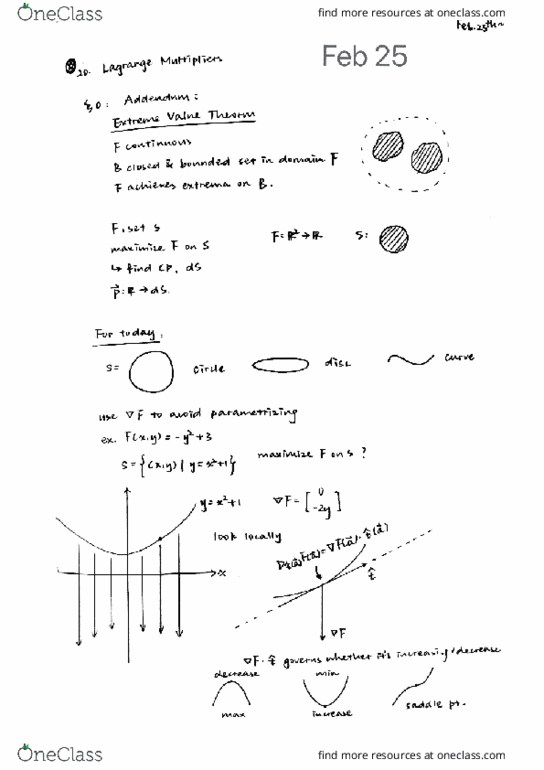 OneClass
find more resources at oneclass.com
Feb. 25th
Feb 25
20. Lagrange Multipliers
§.0: Addendum:
Extreme Value Theorem
F continuous
B closed & bounded set in domain F
F achieves extrema on B.
F, set S
maximize F on S
F = ℝ² → ℝ
S:
↳ find CP, dS
p⃗ = ℝ → dS.
For today:
S =
circle
disc
curve
use ∇F to avoid parametrizing
ex. F(x,y) = -y² + 3
S = {(x,y) | y = x² + 1}
maximize F on S ?
y = x² + 1
∇F = [0 -2y]
look locally
∇F(a⃗) · t̂(a⃗)
x
t̂
∇F
∇F · t̂ governs whether it's increasing/decrease
decrease
max
min
increase
saddle pt.
OneClass
find more resources at oneclass.com